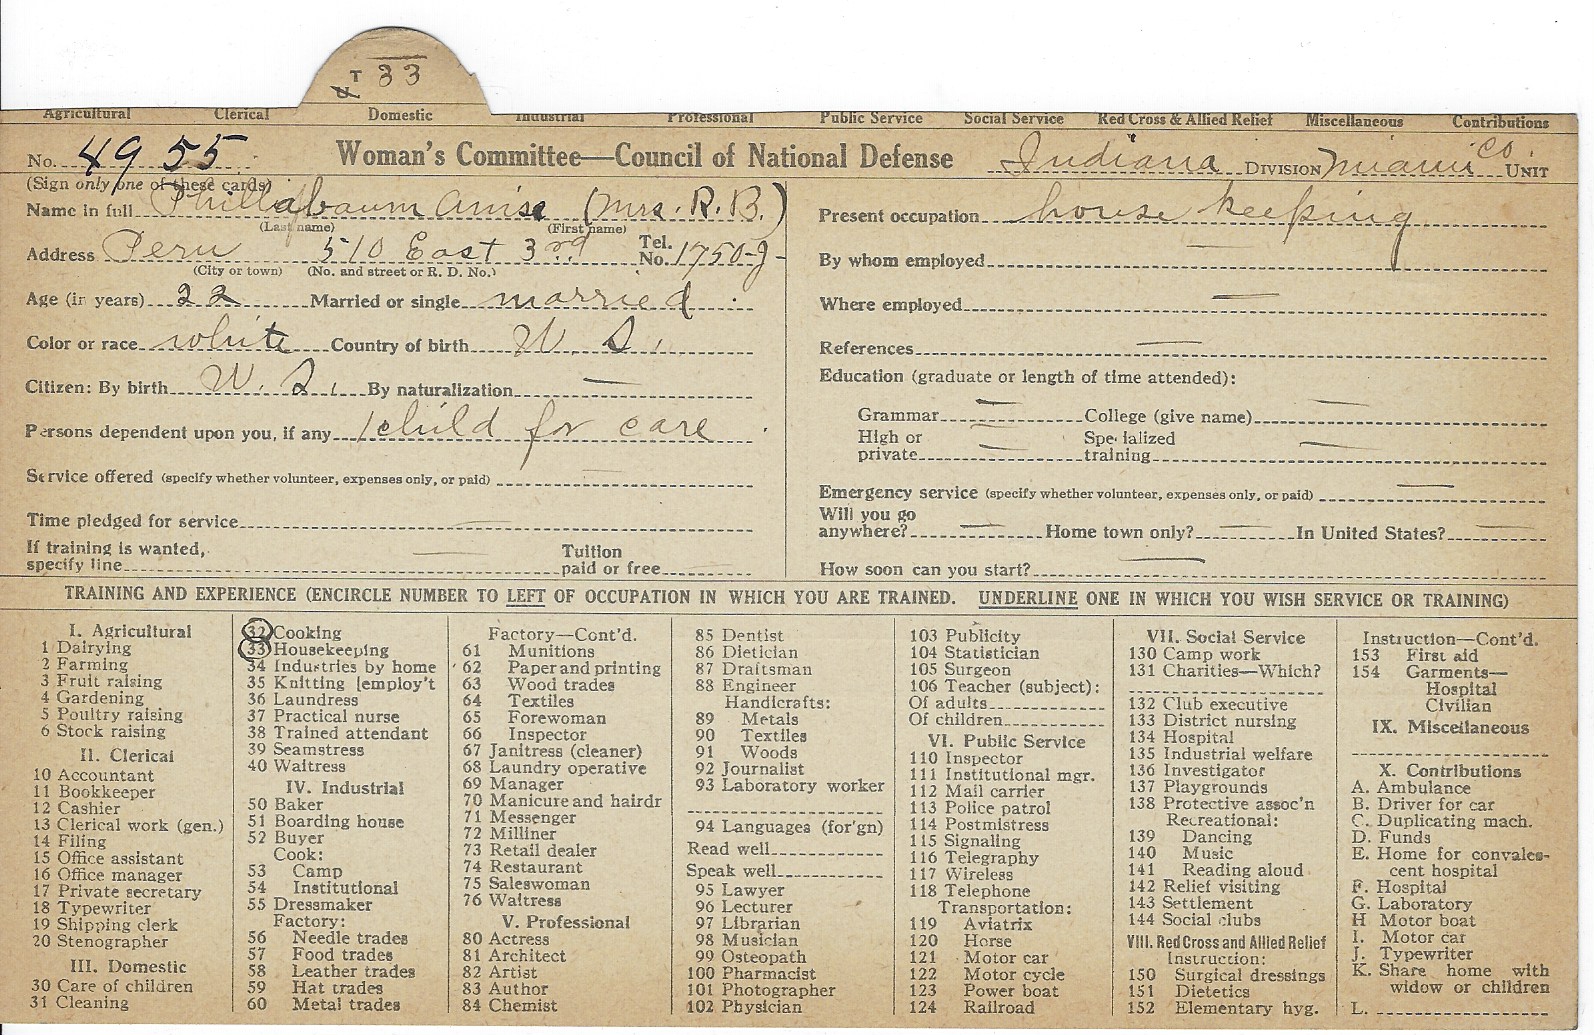 T 33
Agricultural Clerical Domestic Industrial Professional Public Service Social Service Red Cross & Allied Relief Miscellaneous Contributions
No. 4955 Woman's Committee—Council of National Defense Indiana DIVISION Miami Co. UNIT
(Sign only one of these cards)
Name in full Phillabaum (Mrs. R. B.)
(Last name) (First name)
Address Peru 510 East 3rd Tel. No. 1750-J
(City or town) (No. and street or R. D. No.)
Age (in years) 22 Married or single married
Color or race white Country of birth U. S.
Citizen: By birth U. S. By naturalization —
Persons dependent upon you, if any 1 child for care
Service offered (specify whether volunteer, expenses only, or paid) —
Time pledged for service —
If training is wanted, specify line — Tuition paid or free
Present occupation house keeping
By whom employed —
Where employed —
References —
Education (graduate or length of time attended):
Grammar — College (give name) —
High or private — Specialized training —
Emergency service (specify whether volunteer, expenses only, or paid) —
Will you go anywhere? — Home town only? — In United States? —
How soon can you start? —
TRAINING AND EXPERIENCE (ENCIRCLE NUMBER TO LEFT OF OCCUPATION IN WHICH YOU ARE TRAINED. UNDERLINE ONE IN WHICH YOU WISH SERVICE OR TRAINING)
I. Agricultural
1 Dairying
2 Farming
3 Fruit raising
4 Gardening
5 Poultry raising
6 Stock raising
II. Clerical
10 Accountant
11 Bookkeeper
12 Cashier
13 Clerical work (gen.)
14 Filing
15 Office assistant
16 Office manager
17 Private secretary
18 Typewriter
19 Shipping clerk
20 Stenographer
III. Domestic
30 Care of children
31 Cleaning
32 Cooking
33 Housekeeping
34 Industries by home
35 Knitting [employ't
36 Laundress
37 Practical nurse
38 Trained attendant
39 Seamstress
40 Waitress
IV. Industrial
50 Baker
51 Boarding house
52 Buyer
Cook:
53 Camp
54 Institutional
55 Dressmaker
Factory:
56 Needle trades
57 Food trades
58 Leather trades
59 Hat trades
60 Metal trades
Factory—Cont'd.
61 Munitions
62 Paper and printing
63 Wood trades
64 Textiles
65 Forewoman
66 Inspector
67 Janitress (cleaner)
68 Laundry operative
69 Manager
70 Manicure and hairdr
71 Messenger
72 Milliner
73 Retail dealer
74 Restaurant
75 Saleswoman
76 Waitress
V. Professional
80 Actress
81 Architect
82 Artist
83 Author
84 Chemist
85 Dentist
86 Dietician
87 Draftsman
88 Engineer
Handicrafts:
89 Metals
90 Textiles
91 Woods
92 Journalist
93 Laboratory worker
94 Languages (for'gn)
Read well
Speak well
95 Lawyer
96 Lecturer
97 Librarian
98 Musician
99 Osteopath
100 Pharmacist
101 Photographer
102 Physician
103 Publicity
104 Statistician
105 Surgeon
106 Teacher (subject):
Of adults
Of children
VI. Public Service
110 Inspector
111 Institutional mgr.
112 Mail carrier
113 Police patrol
114 Postmistress
115 Signaling
116 Telegraphy
117 Wireless
118 Telephone
Transportation:
119 Aviatrix
120 Horse
121 Motor car
122 Motor cycle
123 Power boat
124 Railroad
VII. Social Service
130 Camp work
131 Charities—Which?
132 Club executive
133 District nursing
134 Hospital
135 Industrial welfare
136 Investigator
137 Playgrounds
138 Protective assoc'n
Recreational:
139 Dancing
140 Music
141 Reading aloud
142 Relief visiting
143 Settlement
144 Social clubs
VIII. Red Cross and Allied Relief
Instruction:
150 Surgical dressings
151 Dietetics
152 Elementary hyg.
Instruction—Cont'd.
153 First aid
154 Garments—
Hospital
Civilian
IX. Miscellaneous
X. Contributions
A. Ambulance
B. Driver for car
C. Duplicating mach.
D. Funds
E. Home for convales-
cent hospital
F. Hospital
G. Laboratory
H Motor boat
I. Motor car
J. Typewriter
K. Share home with
widow or children
L.